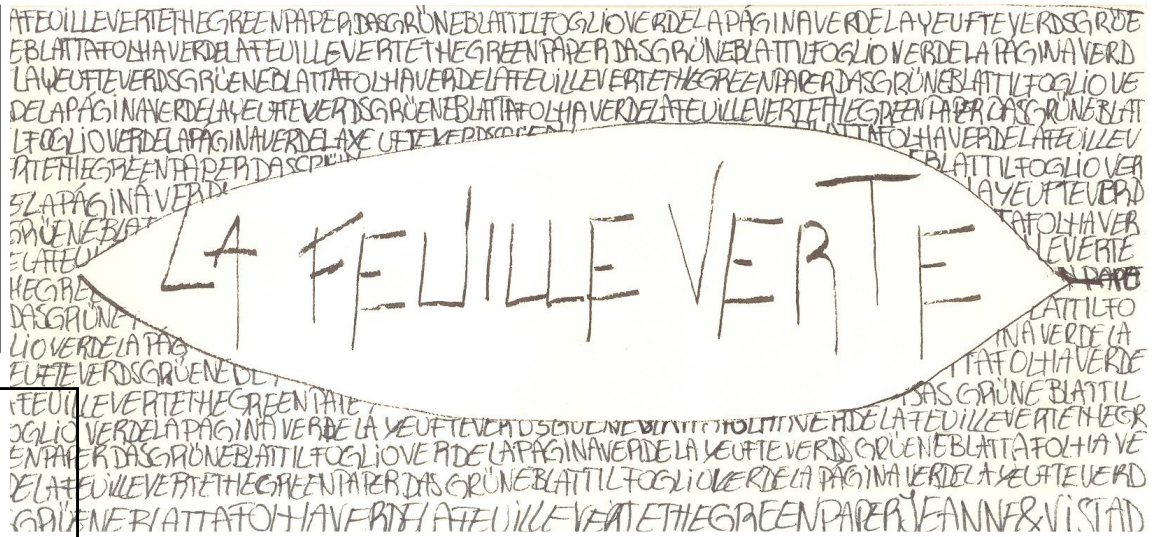 AFEUILLEVERTETHEGREENPAPERDASGRÜNEBLATTILFOGLIOVERDELAPÁGINAVERDELAYEUFTEVERDSGRÜE
EBLATTAFOLHAVERDELAFEUILLEVERTETHEGREENPAPERDASGRÜNEBLATTILFOGLIOVERDELAPÁGINAVERD
LAYEUFTEVERDSGRÜENEBLATTAFOLHAVERDELAFEUILLEVERTETHEGREENPAPERDASGRÜNEBLATTILFOGLIOVE
DELAPÁGINAVERDELAYEUFTEVERDSGRÜENEBLATTAFOLHAVERDELAFEUILLEVERTETHEGREENPAPERDASGRÜNEBLAT
LFOGLIOVERDELAPÁGINAVERDELAYEUFTEVERDSGRÜEN LATTAFOLHAVERDELAFEUILLEV
RTETHEGREENPAPERDASGRÜ BLATTILFOGLIOVER
ELAPÁGINAVERD LAYEUFTEVERD
GRÜENEBLAT TAFOLHAVER
ELAFEU LEVERTE
LA FEUILLE VERTE
HEGREE N PAPE
DASGRÜNE LATTILFO
LIOVERDELAPÁG INAVERDELA
EUFTEVERDSGRÜENEBL TTAFOLHAVERDE
FEUILLEVERTETHEGREENPAPE DAS GRÜNE BLATTIL
OGLIO VERDELAPÁGINAVERDELAYEUFTEVERDSGRÜENEBLATTAFOLHAVERDELAFEUILLEVERTETHEGR
ENPAPERDASGRÜNEBLATTILFOGLIOVERDELAPÁGINAVERDELAYEUFTEVERDSGRÜENEBLATTAFOLHAVE
DELAFEUILLEVERTETHEGREENPAPERDASGRÜNEBLATTILFOGLIOVERDELAPÁGINAVERDELAYEUFTEVERD
GRÜENEBLATTAFOLHAVERDELAFEUILLEVERTETHEGREENPAPERJEANNE&VISTAD